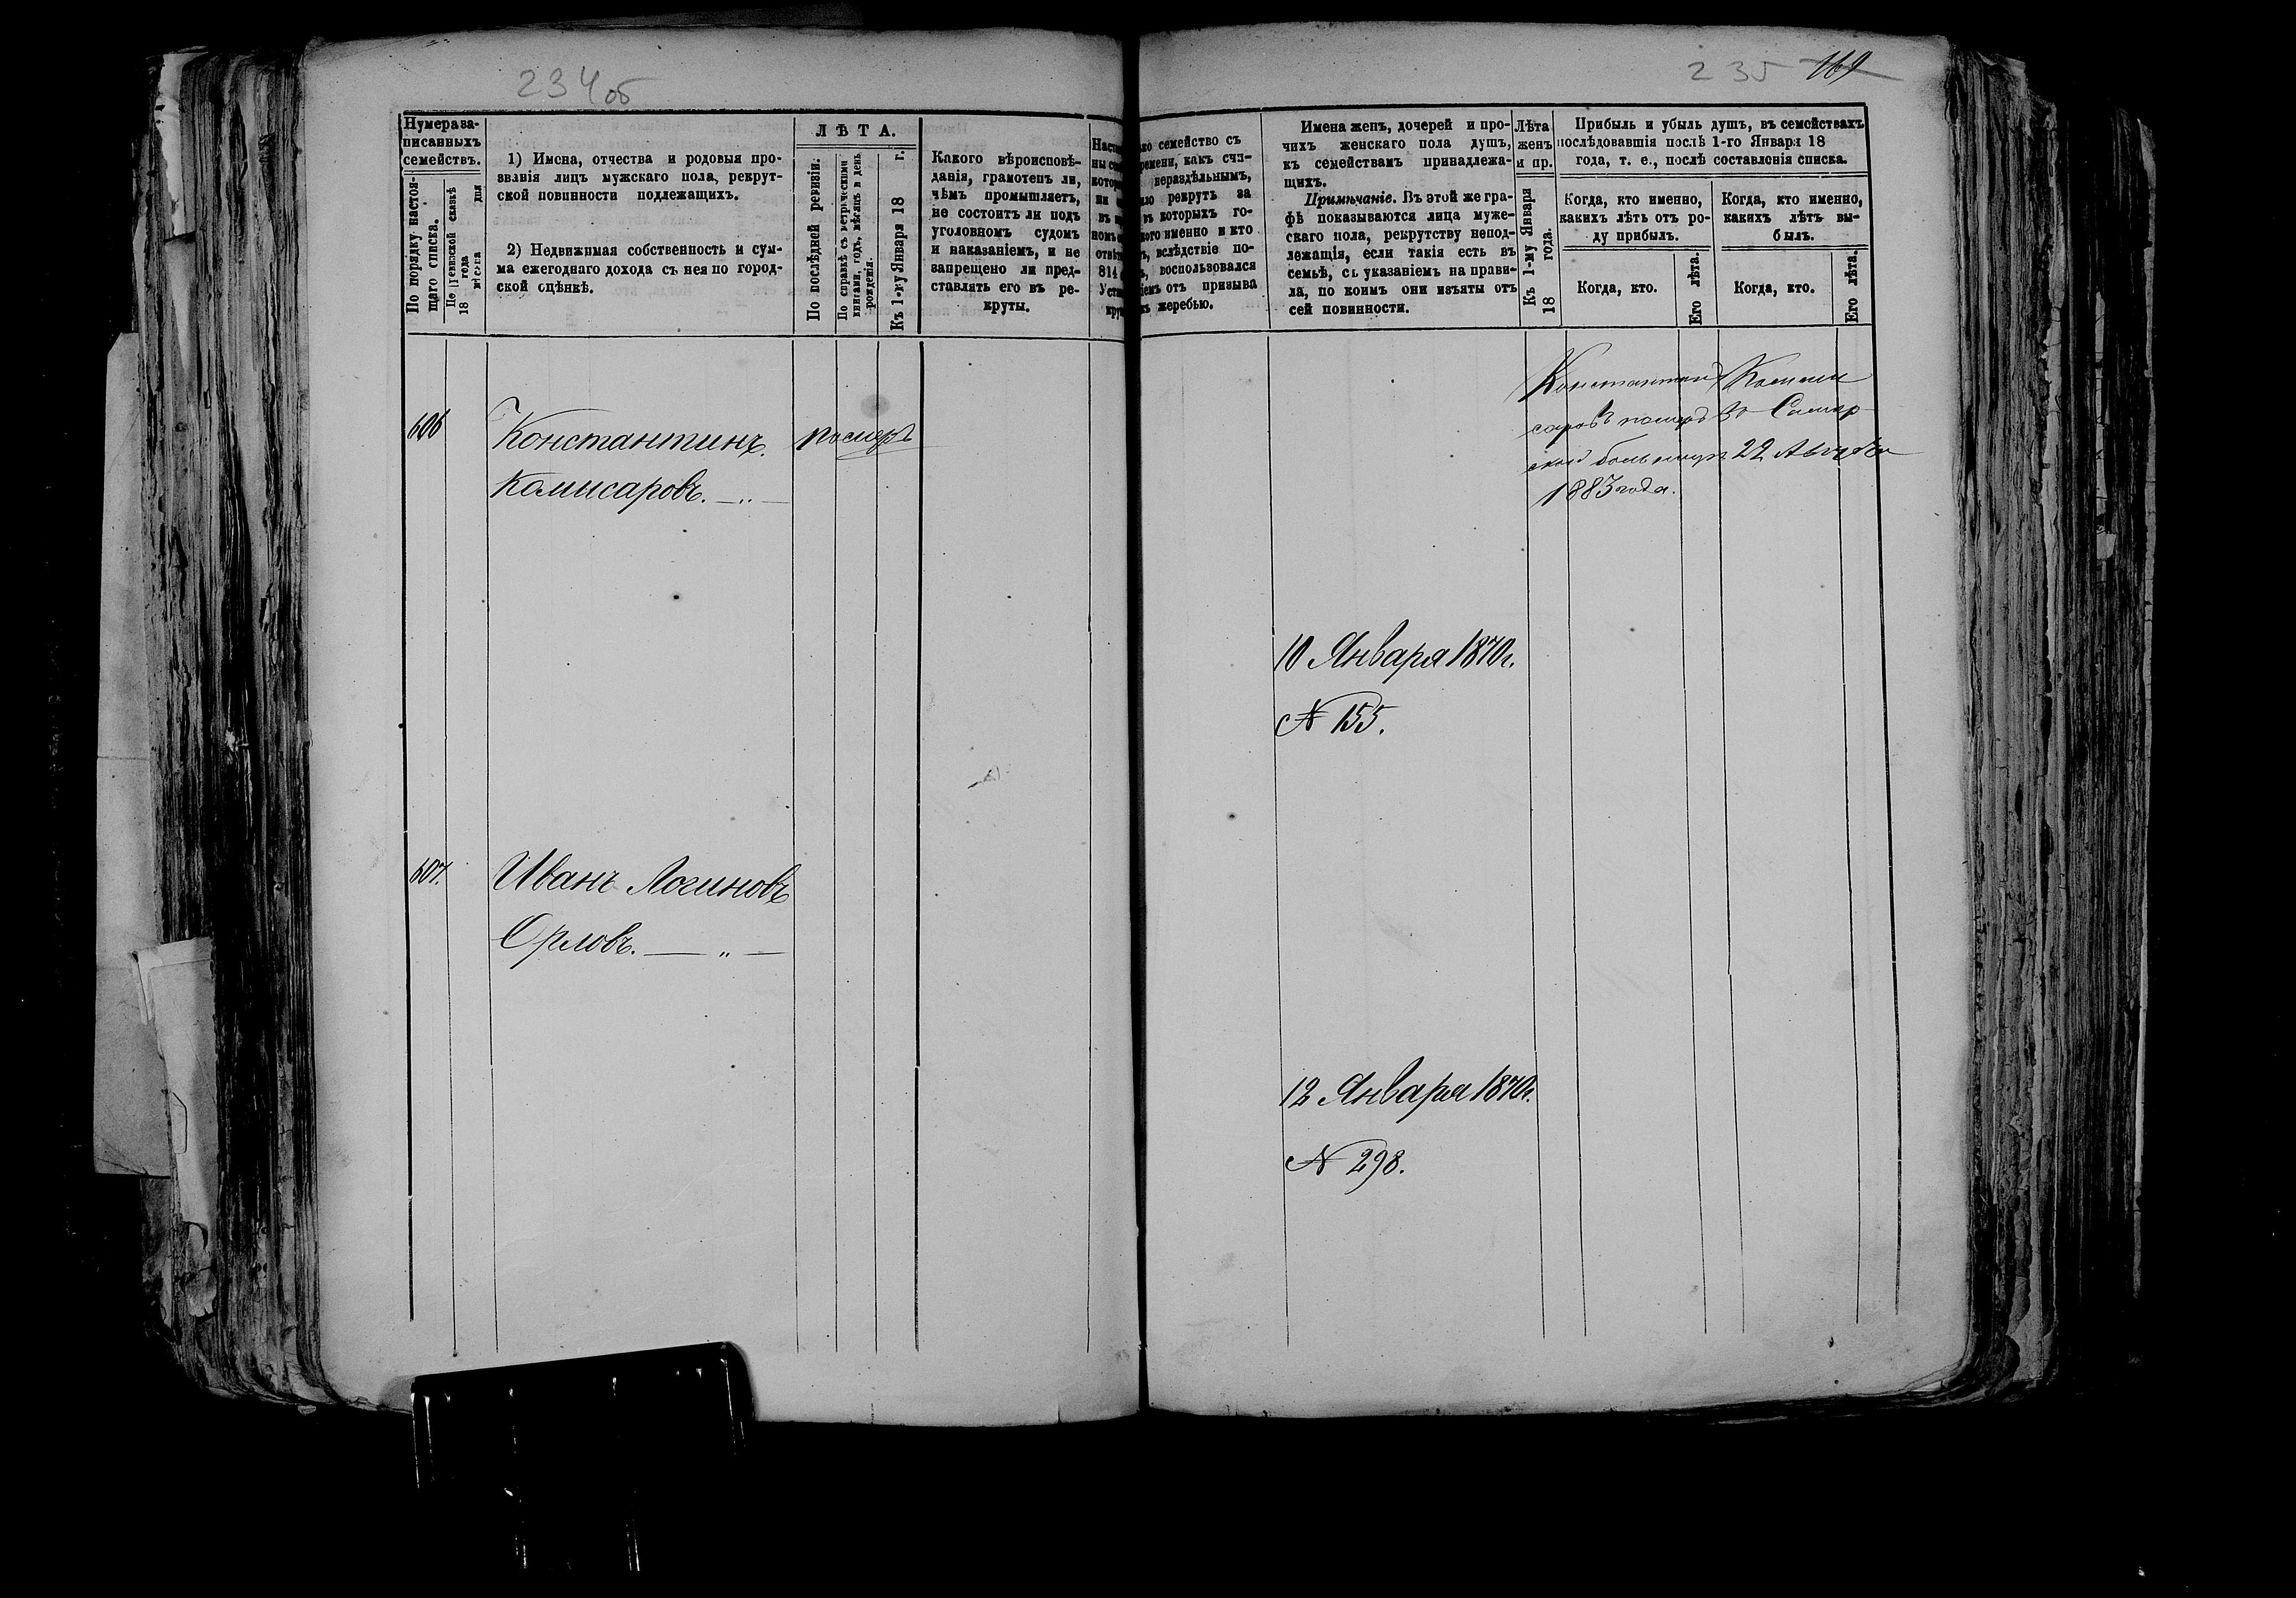 234об
Нумера за-
писанныхъ
семействъ.
По порядку настоя-
щаго списка.
По ревизской сказкѣ
18 года
мѣсяца дня
1) Имена, отчества и родовыя про-
званія лицъ мужскаго пола, рекрут-
ской повинности подлежащихъ.
2) Недвижимая собственность и сум-
ма ежегоднаго дохода съ нея по город-
ской оцѣнкѣ.
ЛѢТА.
По послѣдней ревизіи.
По справкѣ съ метрическими
книгами, годъ, мѣсяцъ и день
рожденія.
Къ 1-му Января 18 г.
Какого вѣроисповѣ-
данія, грамотенъ ли,
чѣмъ промышляетъ,
не состоитъ ли подъ
уголовнымъ судомъ
и наказаніемъ, и не
запрещено ли пред-
ставлять его въ ре-
круты.
606
Константинъ.
Комисаровъ. — „ —
померъ
607.
Иванъ Логиновъ
Орловъ. — „ —
235 169
семейство съ
времени, какъ счи-
нераздѣльнымъ,
рекрутъ за
въ которыхъ го-
кого именно и кто
вслѣдствіе по-
814 воспользовался
отъ призыва
жеребью.
Имена женъ, дочерей и про-
чихъ женскаго пола душъ,
къ семействамъ принадлежа-
щихъ.
Примѣчаніе. Въ этой же гра-
фѣ показываются лица муже-
скаго пола, рекрутству непод-
лежащія, если такія есть въ
семьѣ, съ указаніемъ на прави-
ла, по коимъ они изъяты отъ
сей повинности.
Лѣта
женъ
и пр.
Къ 1-му Января
18 года.
Прибыль и убыль душъ, въ семействахъ
послѣдовавшія послѣ 1-го Января 18
года, т. е., послѣ составленія списка.
Когда, кто именно,
какихъ лѣтъ отъ ро-
ду прибылъ.
Когда, кто.
Его лѣта.
Когда, кто именно,
какихъ лѣтъ вы-
былъ.
Когда, кто.
Его лѣта.
Константинъ Комми
саровъ померъ въ Самар
ской больницѣ 22 Августа
1883 года.
10 Января 1870г.
№ 155.
12 Января 1870г.
№ 298.